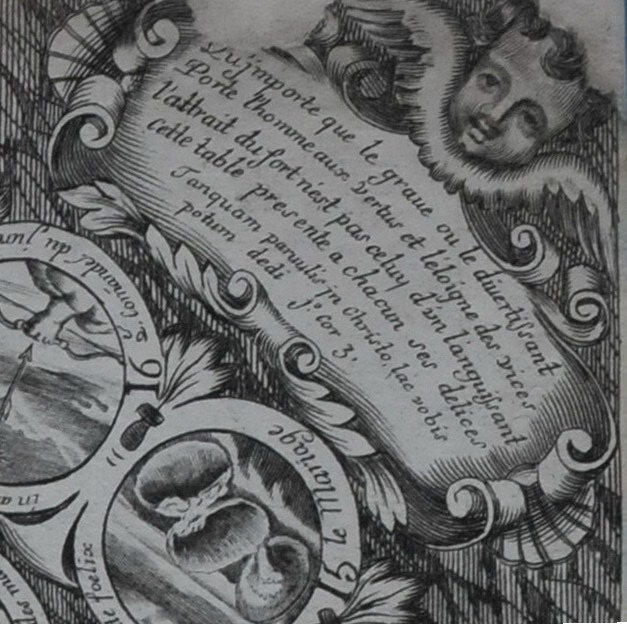 Qu'jmporte que le graue ou le diuertissant
Porte l'homme aux vertus et l'éloigne des vices
l'attrait du fort n'est pas celuy d'ün languissant
cette table presente a chacun ses delices
Tanquam paruulis jn christo, lac vobis
potum dedi j.º cor 3.
16
15 le Mariage
te foelix